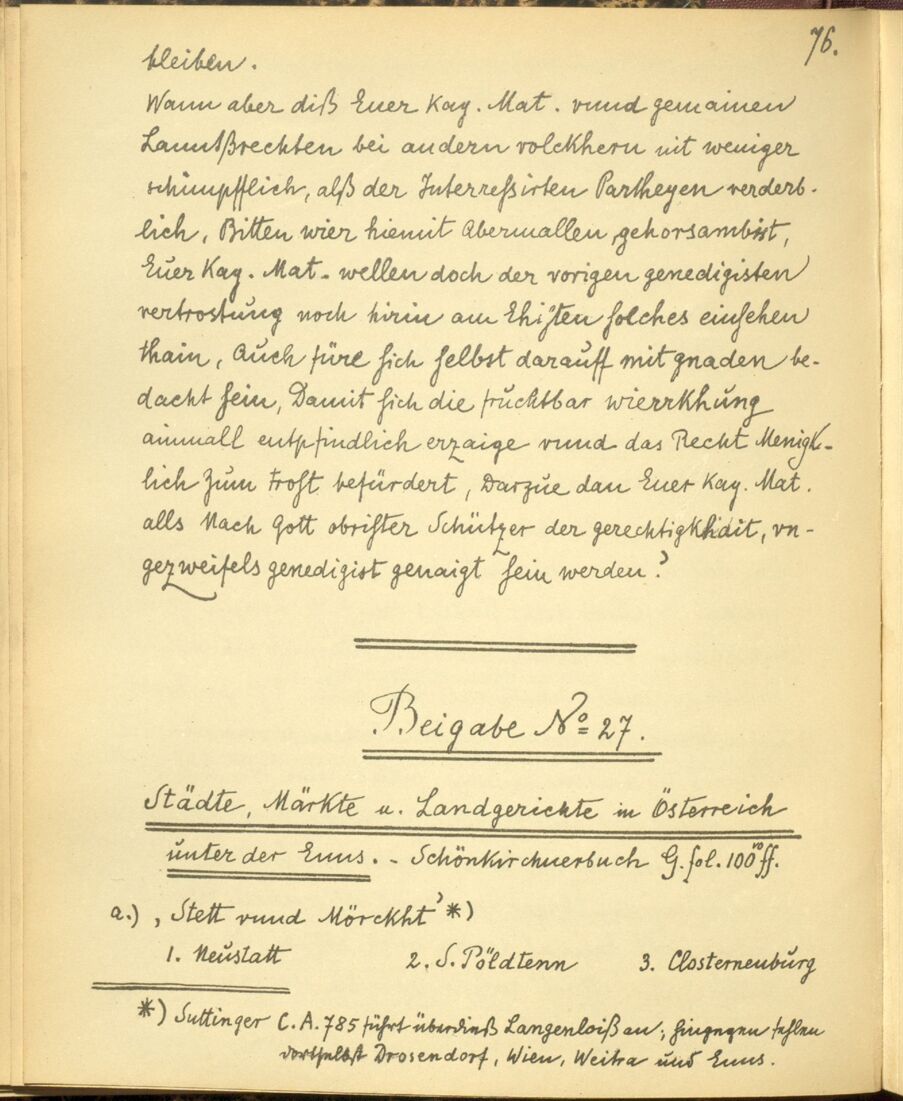 76.
bleiben.
Wann aber diß Euer Kay. Mat. vnnd gemainen
Lanntßrechten bei andern volckhern nit weniger
schimpfflich, alß der Interressirten Partheyen verderb-
lich, Bitten wier hiemit Abermallen gehorsambist,
Euer Kay. Mat. wellen doch der vorigen genedigisten
vertrostung noch hirin am Ehisten solches einsehen
thain, Auch füre sich selbst darauff mit gnaden be-
dacht sein, Damit sich die fruchtbar wierrkhung
ainmall entpfindlich erzaige vnnd das Recht Menigk-
lich zum trost befürdert, Darzue dan Euer Kay. Mat.
alls Nach Gott obrister Schützer der gerechtigkhait, vn-
gezweifels genedigist genaigt sein werden.'
Beigabe No 27.
Städte, Märkte u. Landgerichte in Österreich
unter der Enns. - Schönkirchnerbuch G. fol. 100vo ff.
a.) ‚Stett vnnd Mörckht' *)
1. Neustatt 2. S. Pöldtenn 3. Closterneuburg
*) Suttinger C. A. 785 führt überdieß Langenloiß an; hingegen fehlen
dortselbst Drosendorf, Wien, Weitra und Enns.